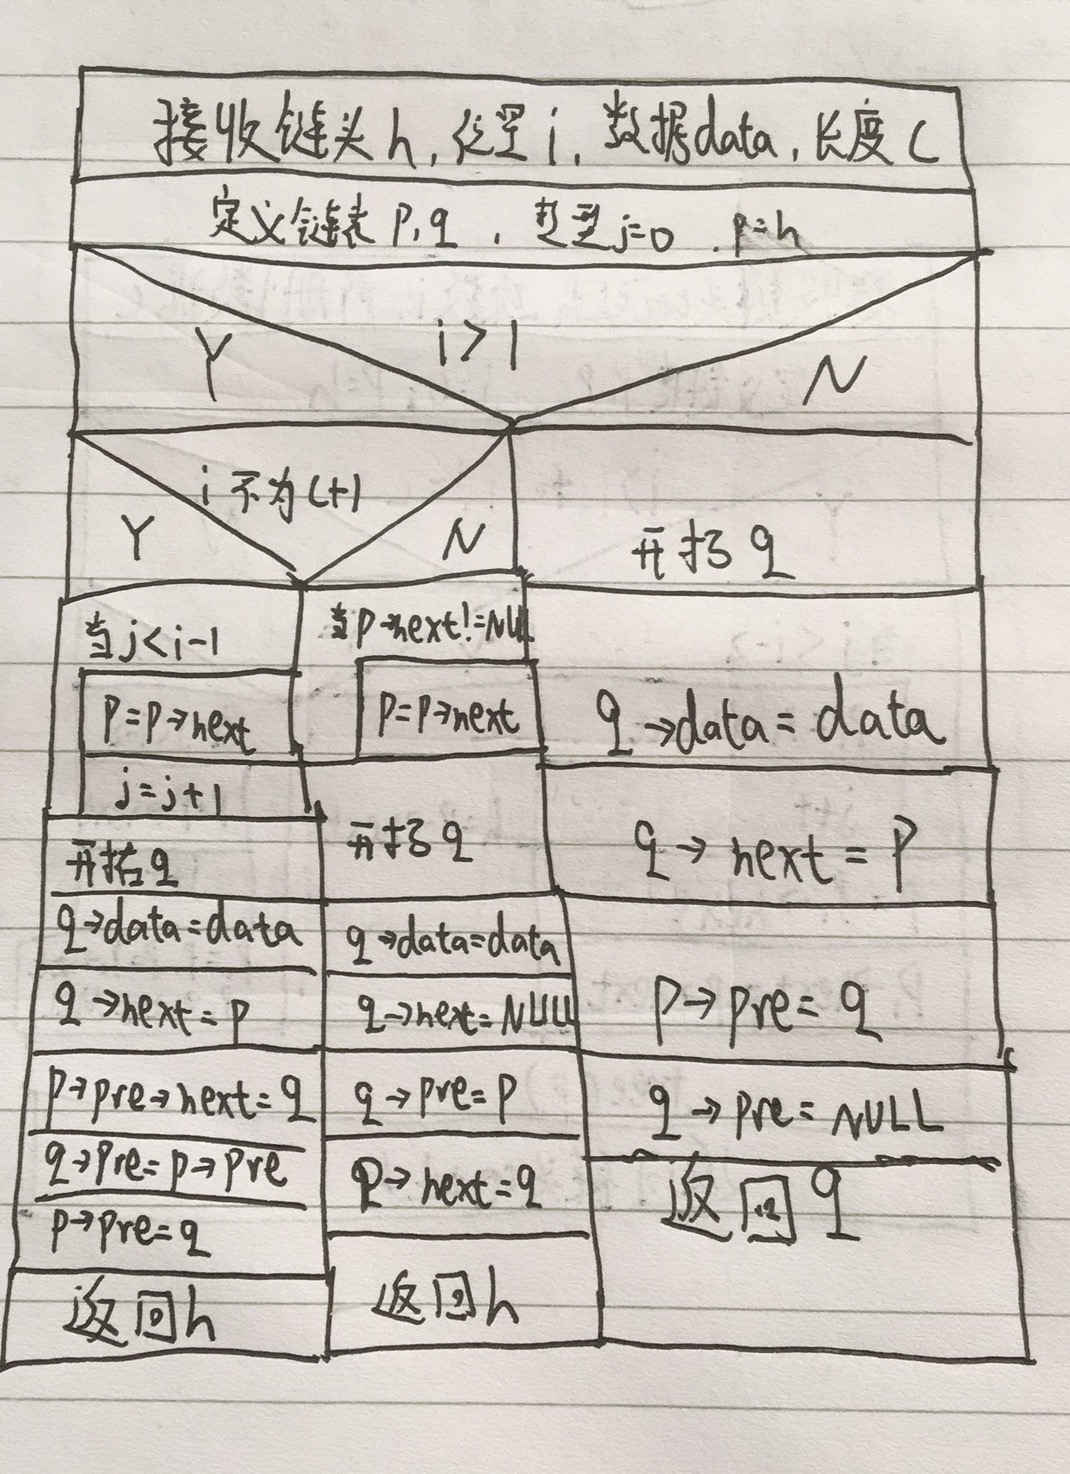 接收链头h,位置i,数据data,长度L
定义链表p,q,整型j=0,p=h
i>1
Y
N
i不为L+1
Y
N
当j<i-1
p=p→next
j=j+1
开拓q
q→data=data
q→next=p
p→pre→next=q
q→pre=p→pre
p→pre=q
返回h
当p→next!=NULL
p=p→next
开拓q
q→data=data
q→next=NULL
q→pre=p
p→next=q
返回h
开拓q
q→data=data
q→next=p
p→pre=q
q→pre=NULL
返回q